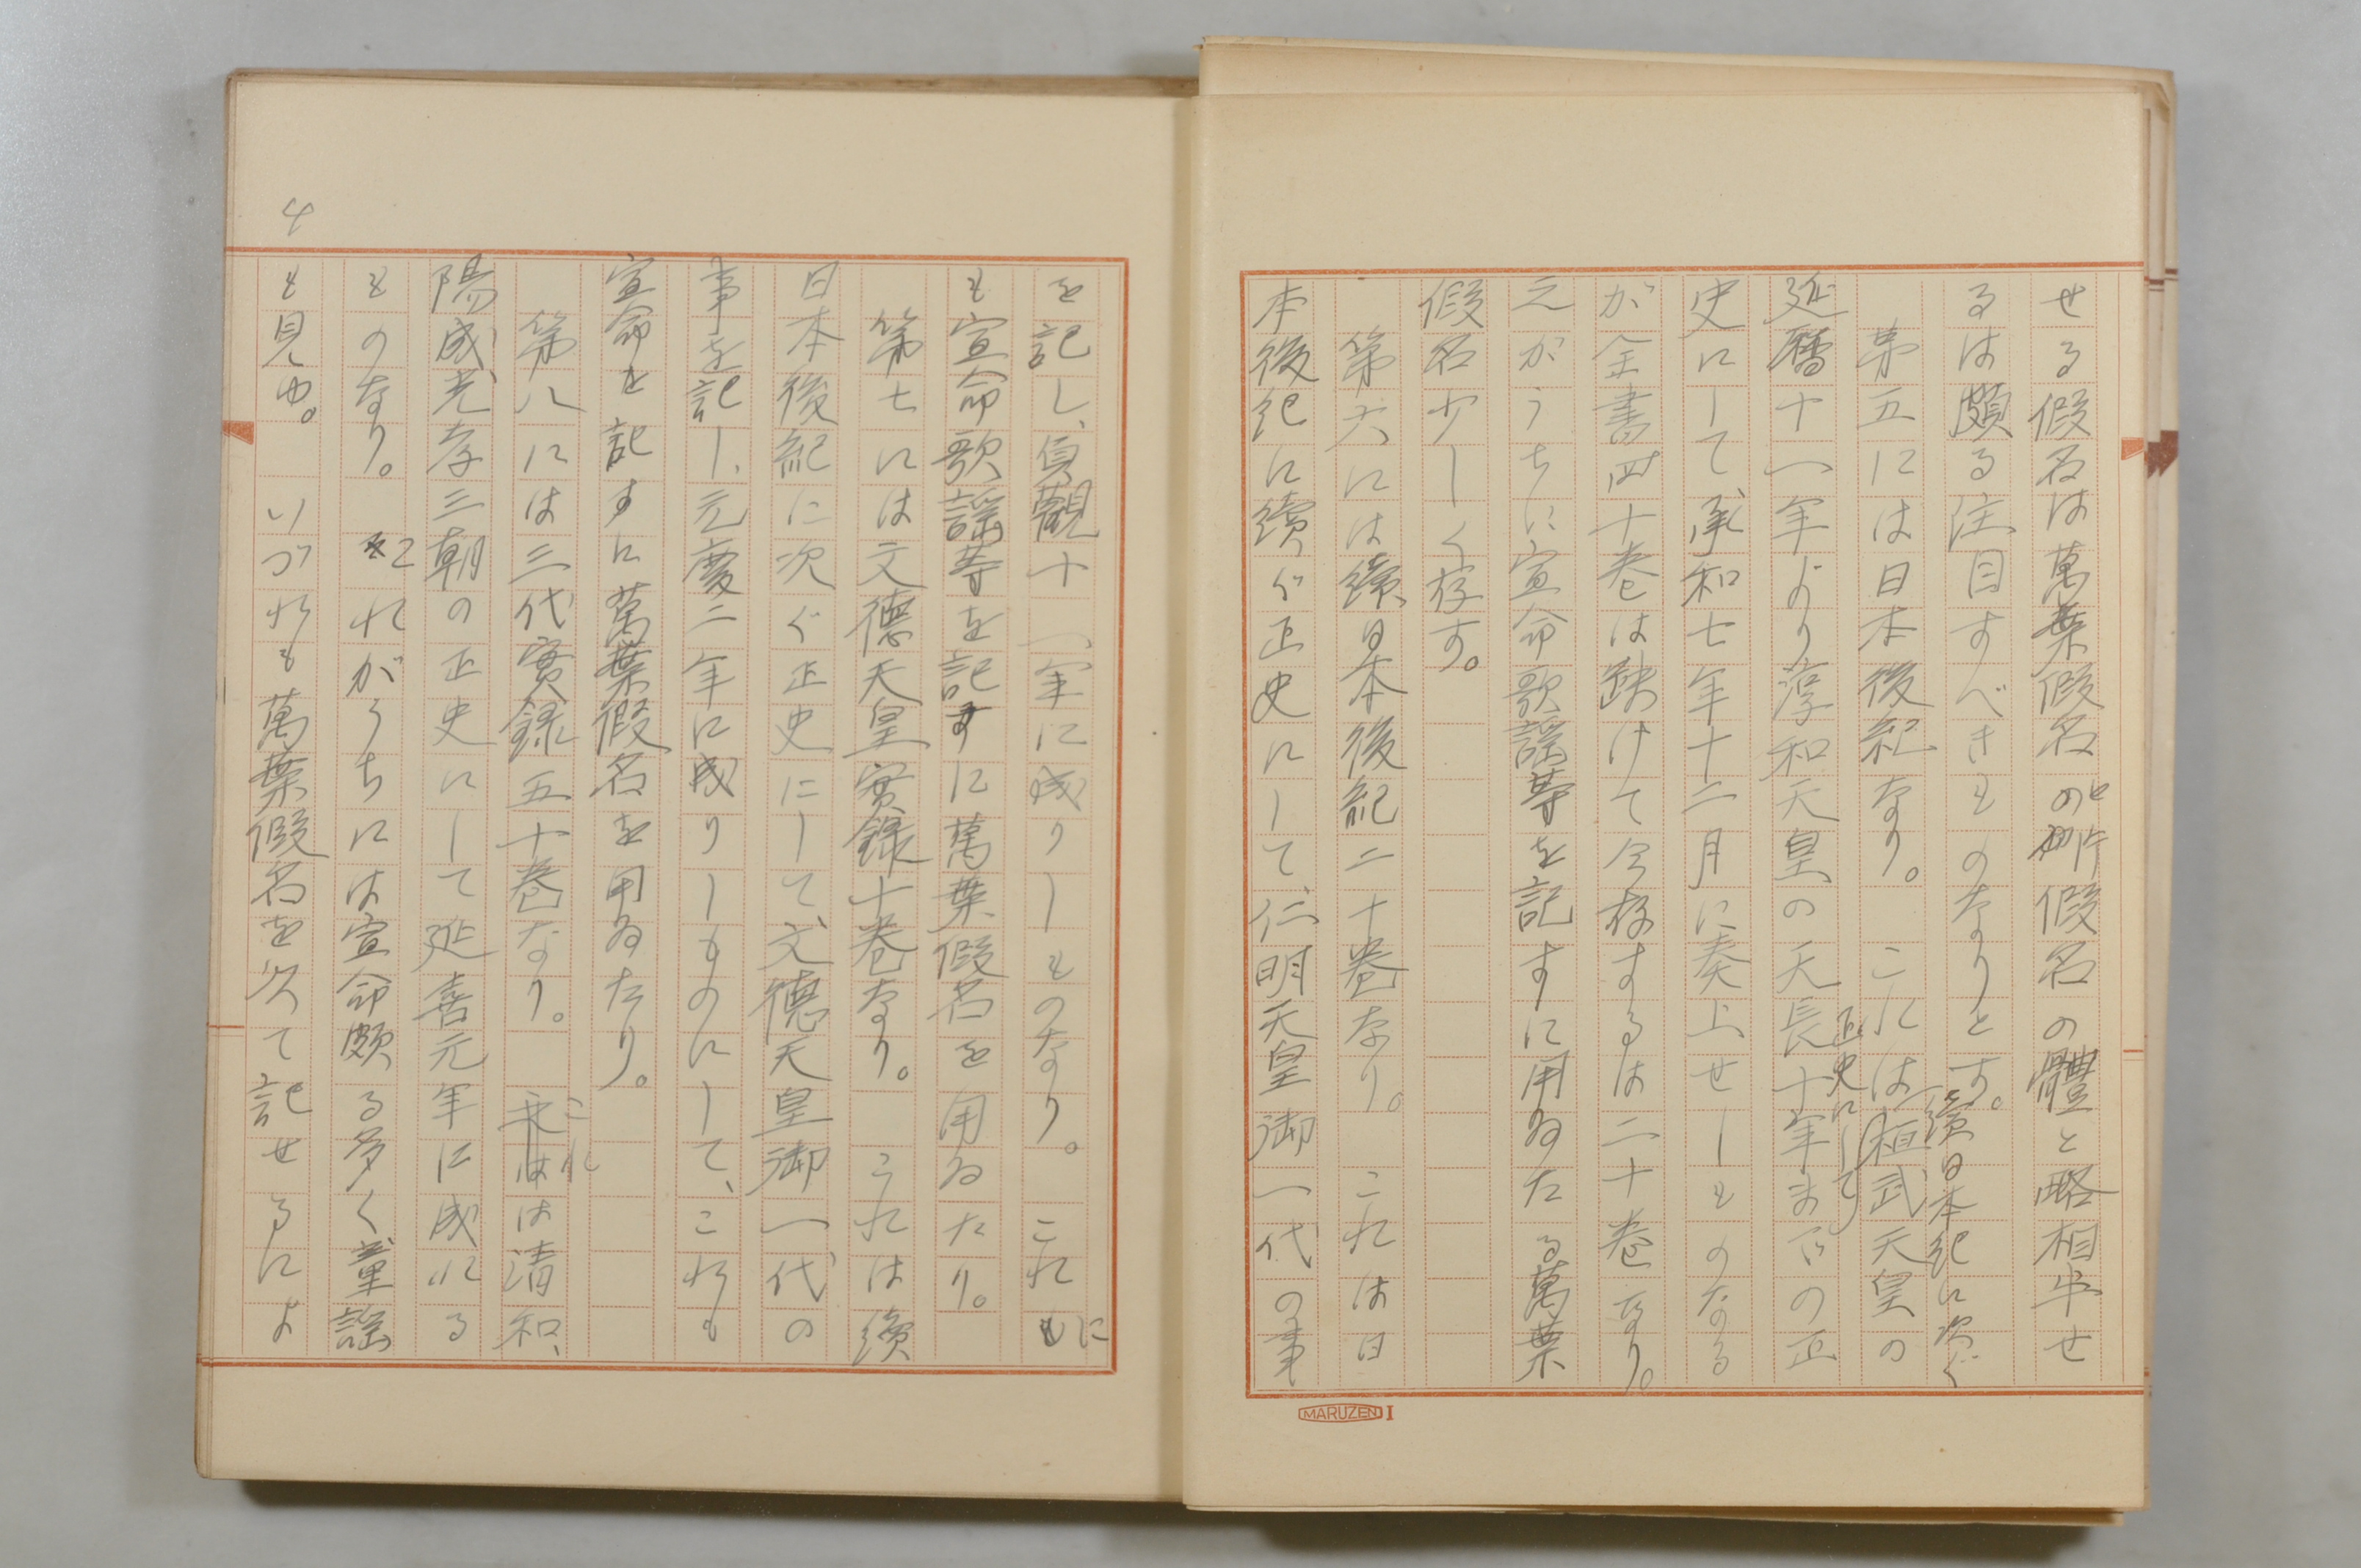 せる假名は萬葉假名と片假名の體と略相半せ
るは頗る注目すべきものなりとす。
第五には日本後紀なり。これは續日本紀に次ぐ正史にして桓武天皇の
延曆十一年より淳和天皇の天長十年までの正
史にして承和七年十二月に奏上せしものなる
が全書四十卷は缺けて今存するは二十卷なり。
こがうちに宣命歌謡等を記すに用ゐたる萬葉
假名少しく存す。
第六には續日本後紀二十卷なり。これは日
本後紀に續ぐ正史にして仁明天皇御一代の事
を記し、貞觀十一年に成りしものなり。これに
も宣命歌謡等を記すに萬葉假名を用ゐたり。
第七には文德天皇實錄十卷なり。これは續
日本後紀に次ぐ正史にして文德天皇御一代の
事を記し、元慶二年に成りしものにして、これも
宣命を記すに萬葉假名を用ゐたり。
第八には三代實錄五十卷なり。これは清和、
陽成光孝三朝の正史にして延喜元年に成れる
ものなり。これがうちには宣命頗る多く童謡
も見ゆ。いづれも萬葉假名を以て記せるによ
4
MARUZEN I